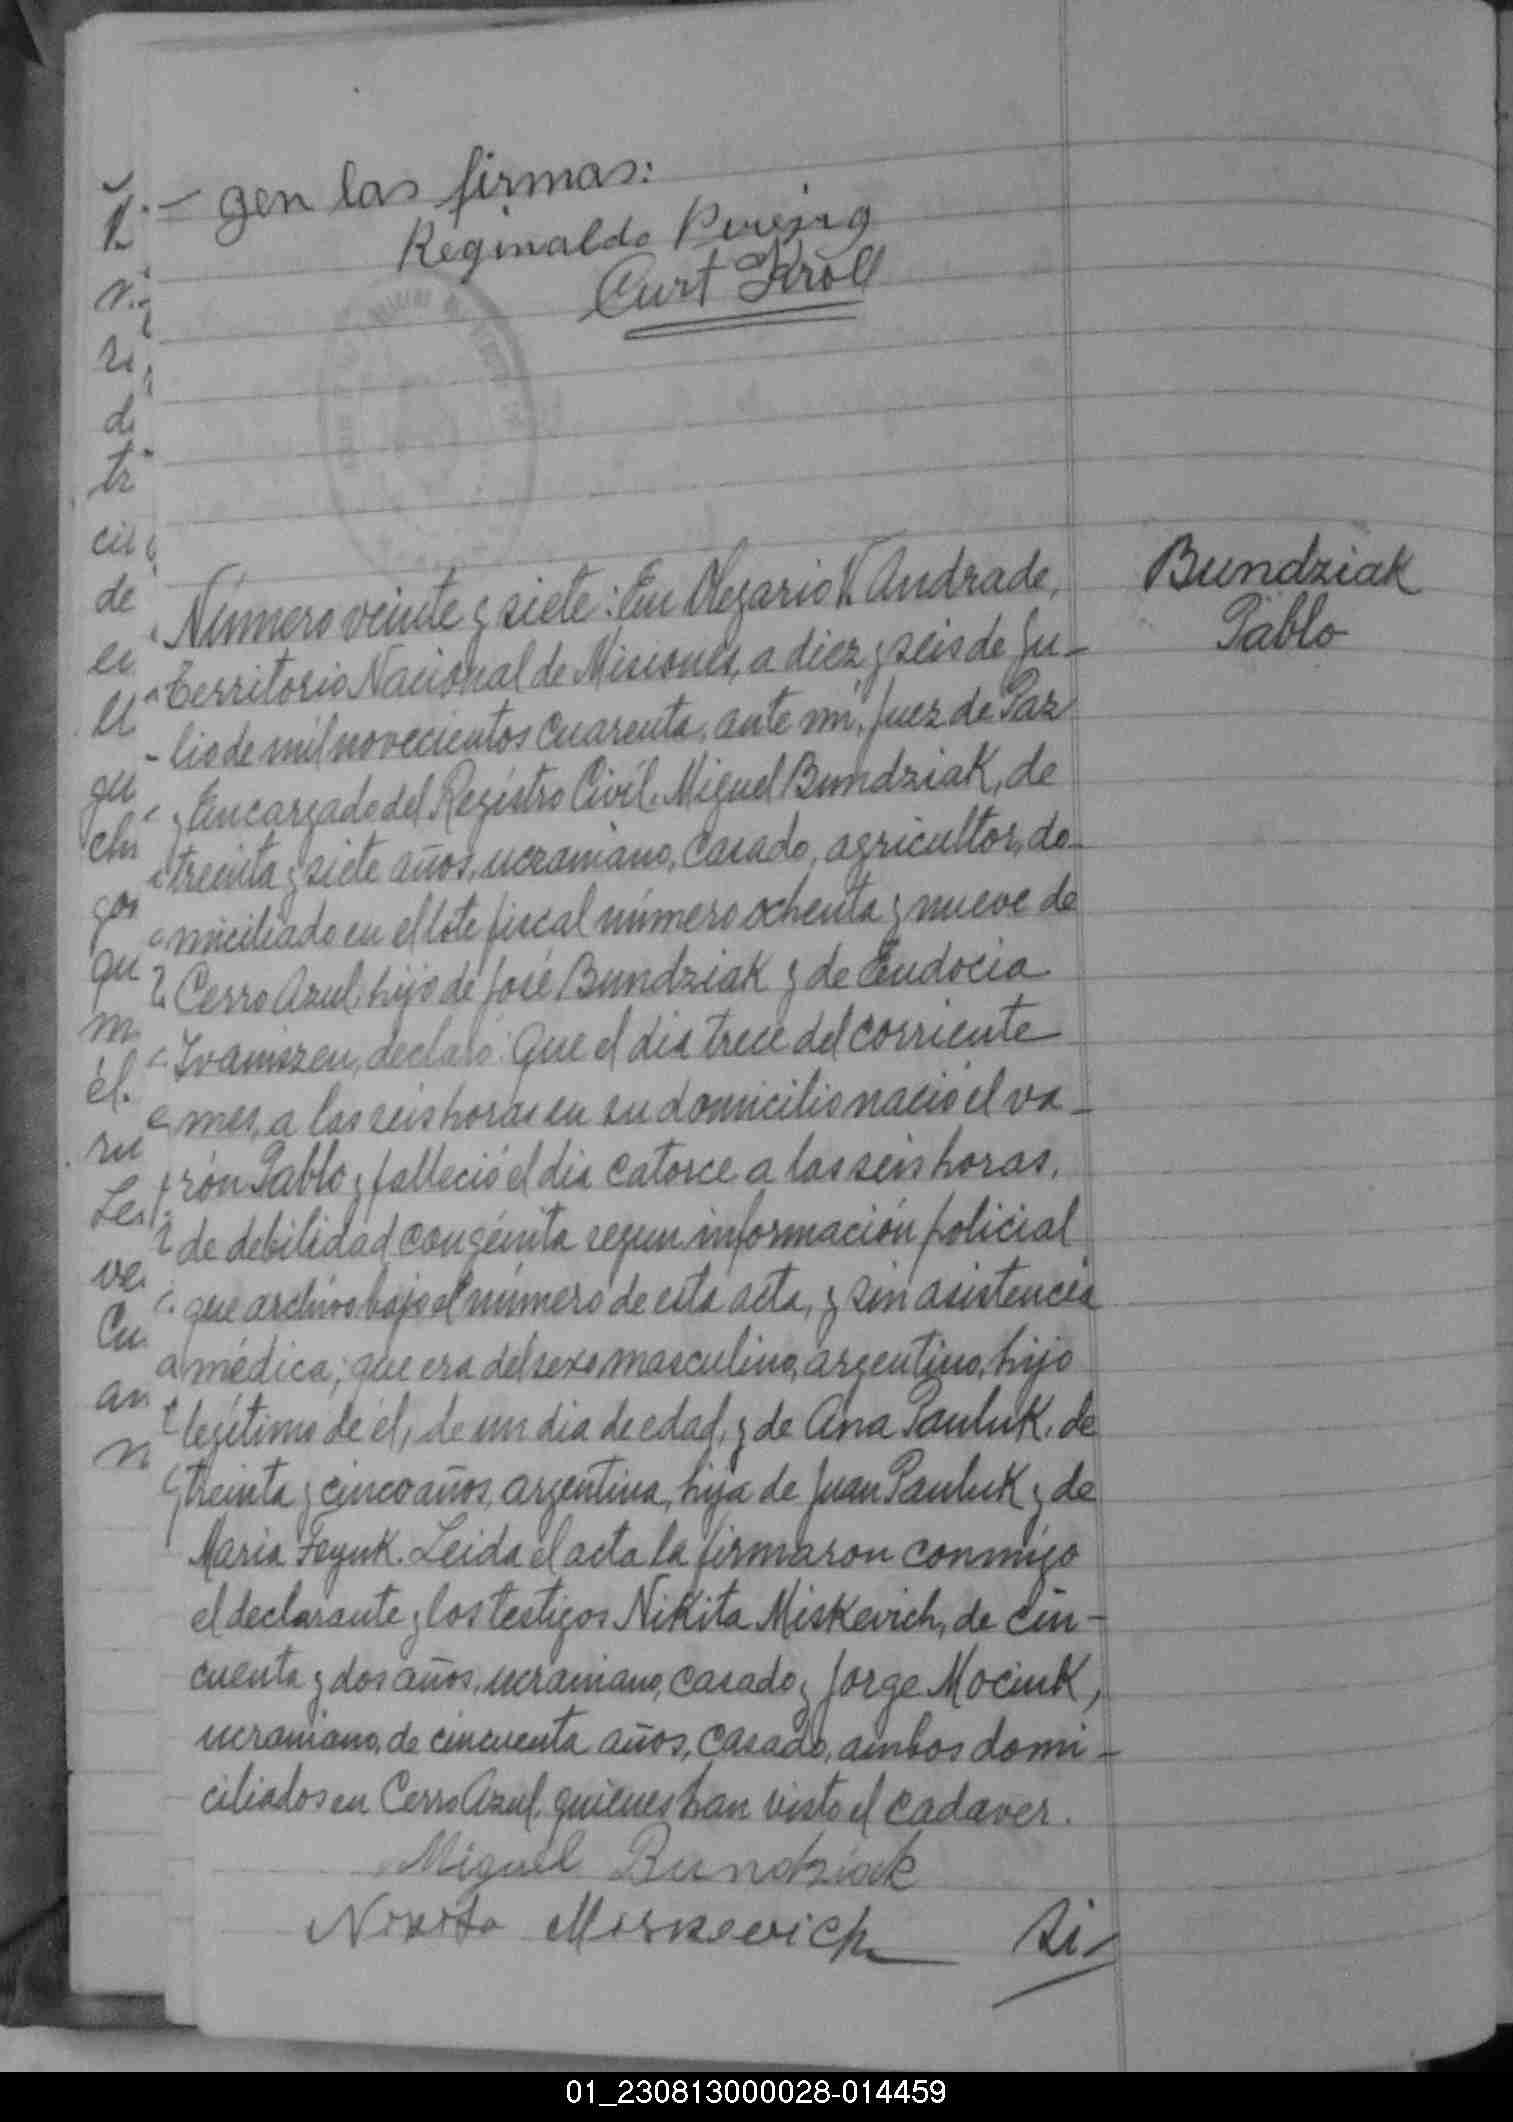 gen las firmas:
Reginaldo
Curt Kroll
Bundziak
Pablo
Número veinte y siete: En Olegario V. Andrade,
Territorio Nacional de Misiones, a diez y seis de Ju-
lio de mil novecientos cuarenta, ante mí, Juez de Paz
y Encargado del Registro Civil, Miguel Bundziak, de
treinta y siete años, ucraniano, casado, agricultor, do-
miciliado en el lote fiscal número ochenta y nueve de
Cerro Azul, hijo de José Bundziak y de Eudocia
declaró: Que el dia trece del corriente
mes, a las seis horas en su domicilio nació el va-
rón Pablo y falleció el dia catorce a las seis horas,
de debilidad congénita segun información policial
que archivo bajo el número de esta acta, y sin asistencia
médica; que era del sexo masculino, argentino, hijo
legítimo de él, de un dia de edad, y de Ana Pauluk, de
treinta y cinco años, argentina, hija de Juan Pauluk y de
Maria Feyuk. Leida el acta la firmaron conmigo
el declarante y los testigos Nikita Miskevich, de cin-
cuenta y dos años, ucraniano, casado y Jorge Mociuk,
ucraniano, de cincuenta años, casado, ambos domi-
ciliados en Cerro Azul, quienes han visto el cadaver.
Miguel Bundziak
Nikita Miskevich Si-
01_230813000028-014459